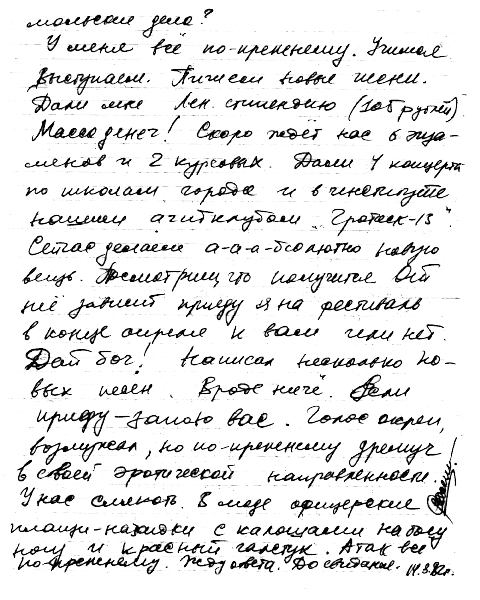 мольские дела?
У меня всё по-прежнему. Учимся
Выступаем. Пишем новые песни.
Дали мне Лен. стипендию (105 рублей)
Масса денег! Скоро ждёт нас 6 экза-
менов и 2 курсовых. Дали 4 концерта
по школам города и в институте
нашим агитклубом "Гротеск-13".
Сейчас делаем а-а-а-бсолютно новую
вещь. Посмотрим, что получится. От
неё зависит приеду я на фестиваль
в конце апреля к вам или нет.
Дай бог! Написал несколько но-
вых песен. Вроде ничё. Если
приеду - запою вас. Голос окреп,
возмужал, но по-прежнему дремуч
в своей эротической направленности.
У нас слякоть. В моде офицерские
плащи-накидки с калошами на босу
ногу и красный галстук. А так все
по-прежнему. Жду ответа. До свидания. 14.3.82г.